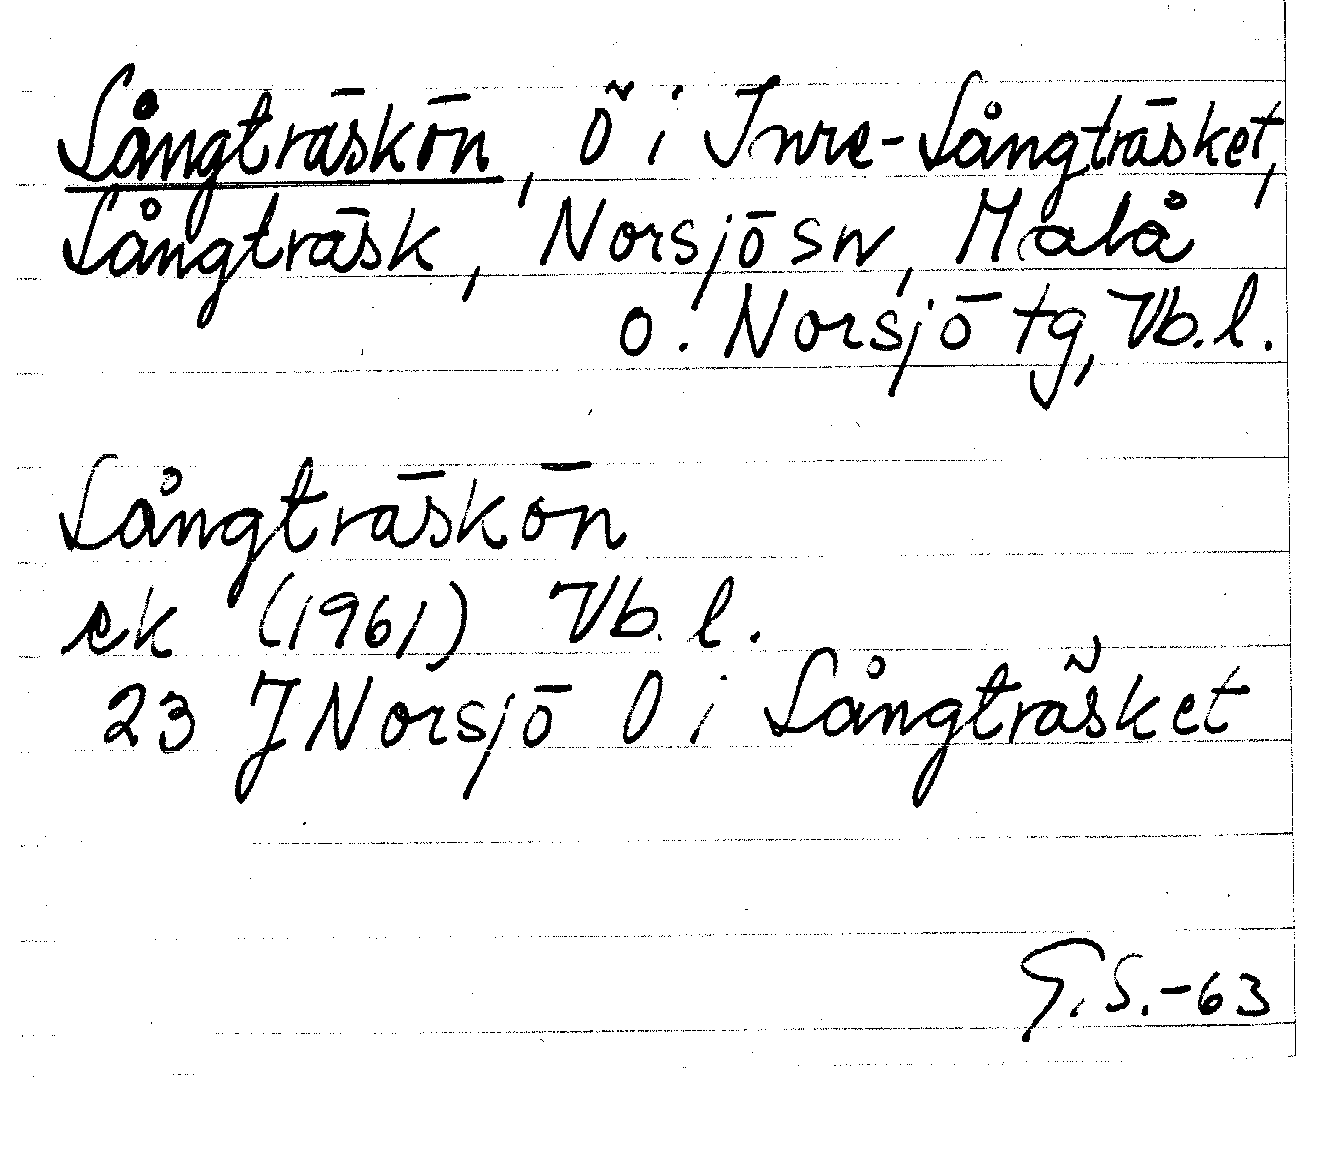 Långträskön, ö i Inre-Långträsket,
Långträsk, Norsjö sn, Malå
o. Norsjö tg, Vb. l.
Långträskön
ek (1961) Vb. l.
23 J Norsjö Ö i Långträsket
G. S. -63